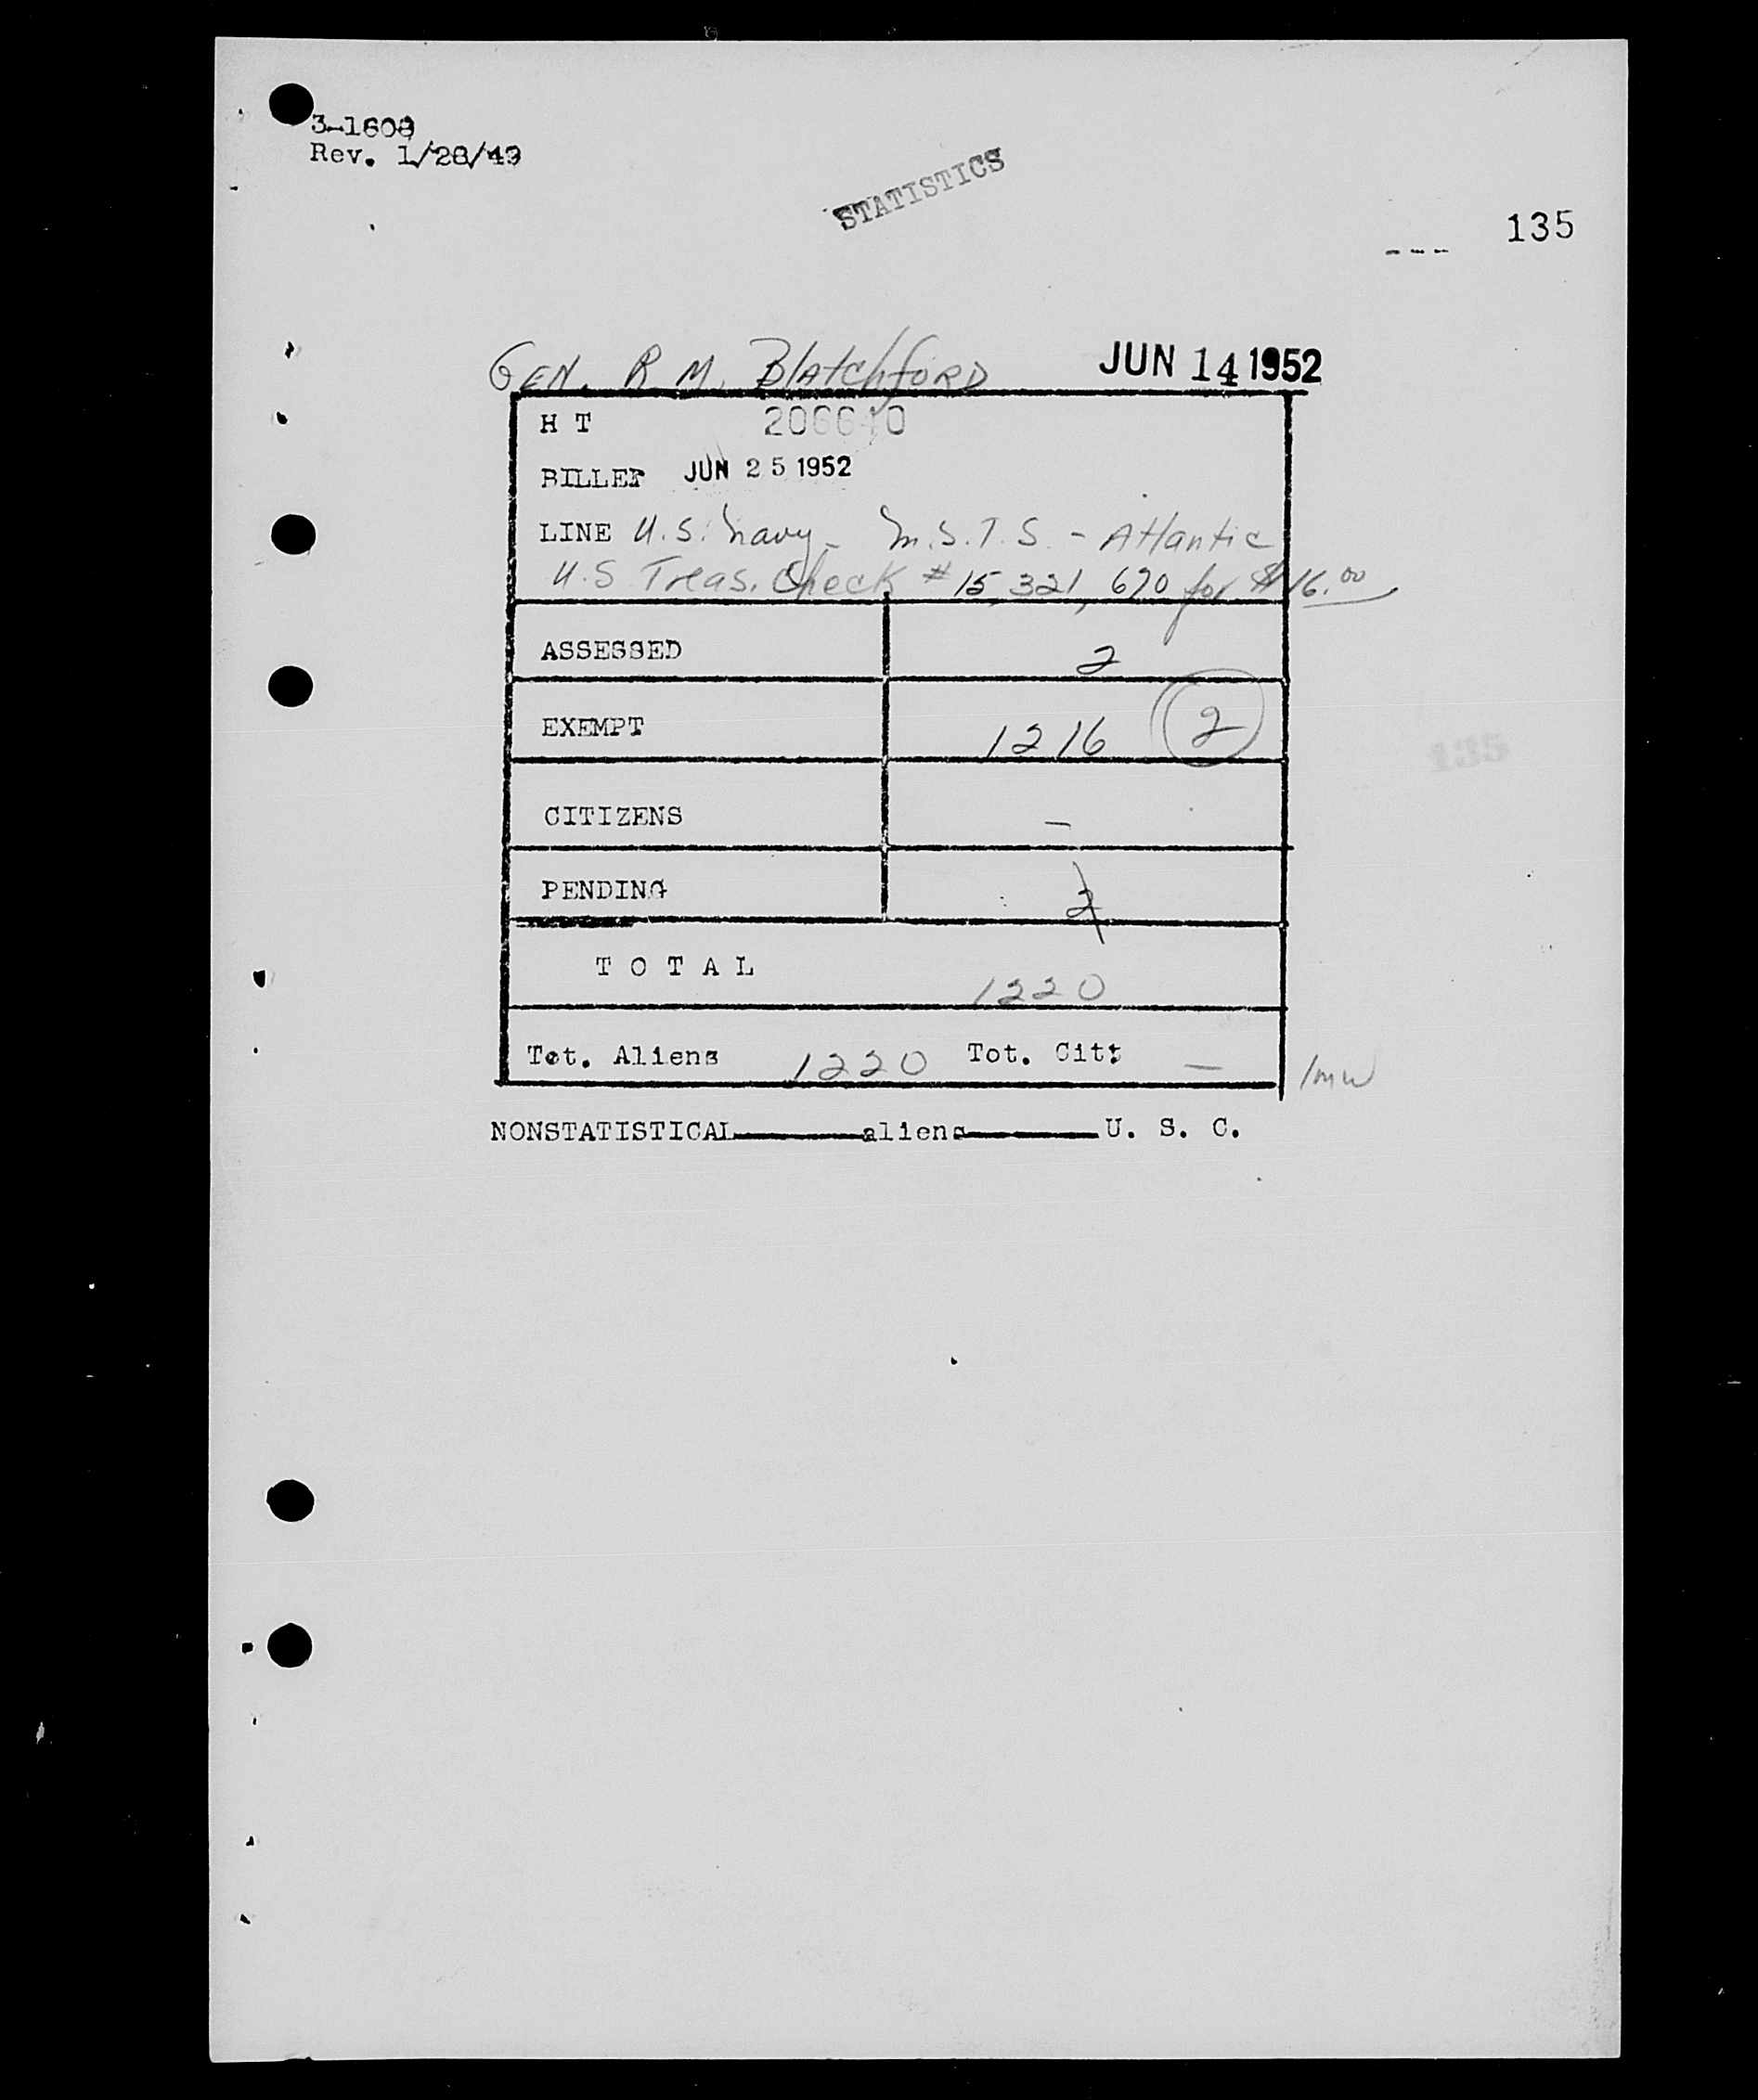 3-1608
Rev. 1/28/49
STATISTICS
135
GEN. R. M. BlatchFORD JUN 14 1952
H T 206640
BILLET JUN 25 1952
LINE U.S. Navy - M.S.T.S. - Atlantic
U.S Treas. Check # 15,321,670 for $16.00
ASSESSED 2
EXEMPT 1216 2
CITIZENS –
PENDING 2
T O T A L 1220
Tot. Aliens 1220 Tot. Cit: –
NONSTATISTICAL aliens U. S. C.
135